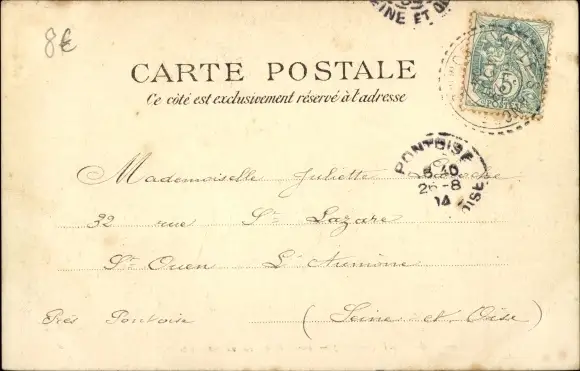 8€
SEINE ET OI
5c
CARTE POSTALE
Ce côté est exclusivement réservé à l'adresse
PONTOISE
OISE
26-8
04
Mademoiselle Juliette
32 rue St Lazare
St Ouen L'Aumône
Près Pontoise (Seine et Oise)